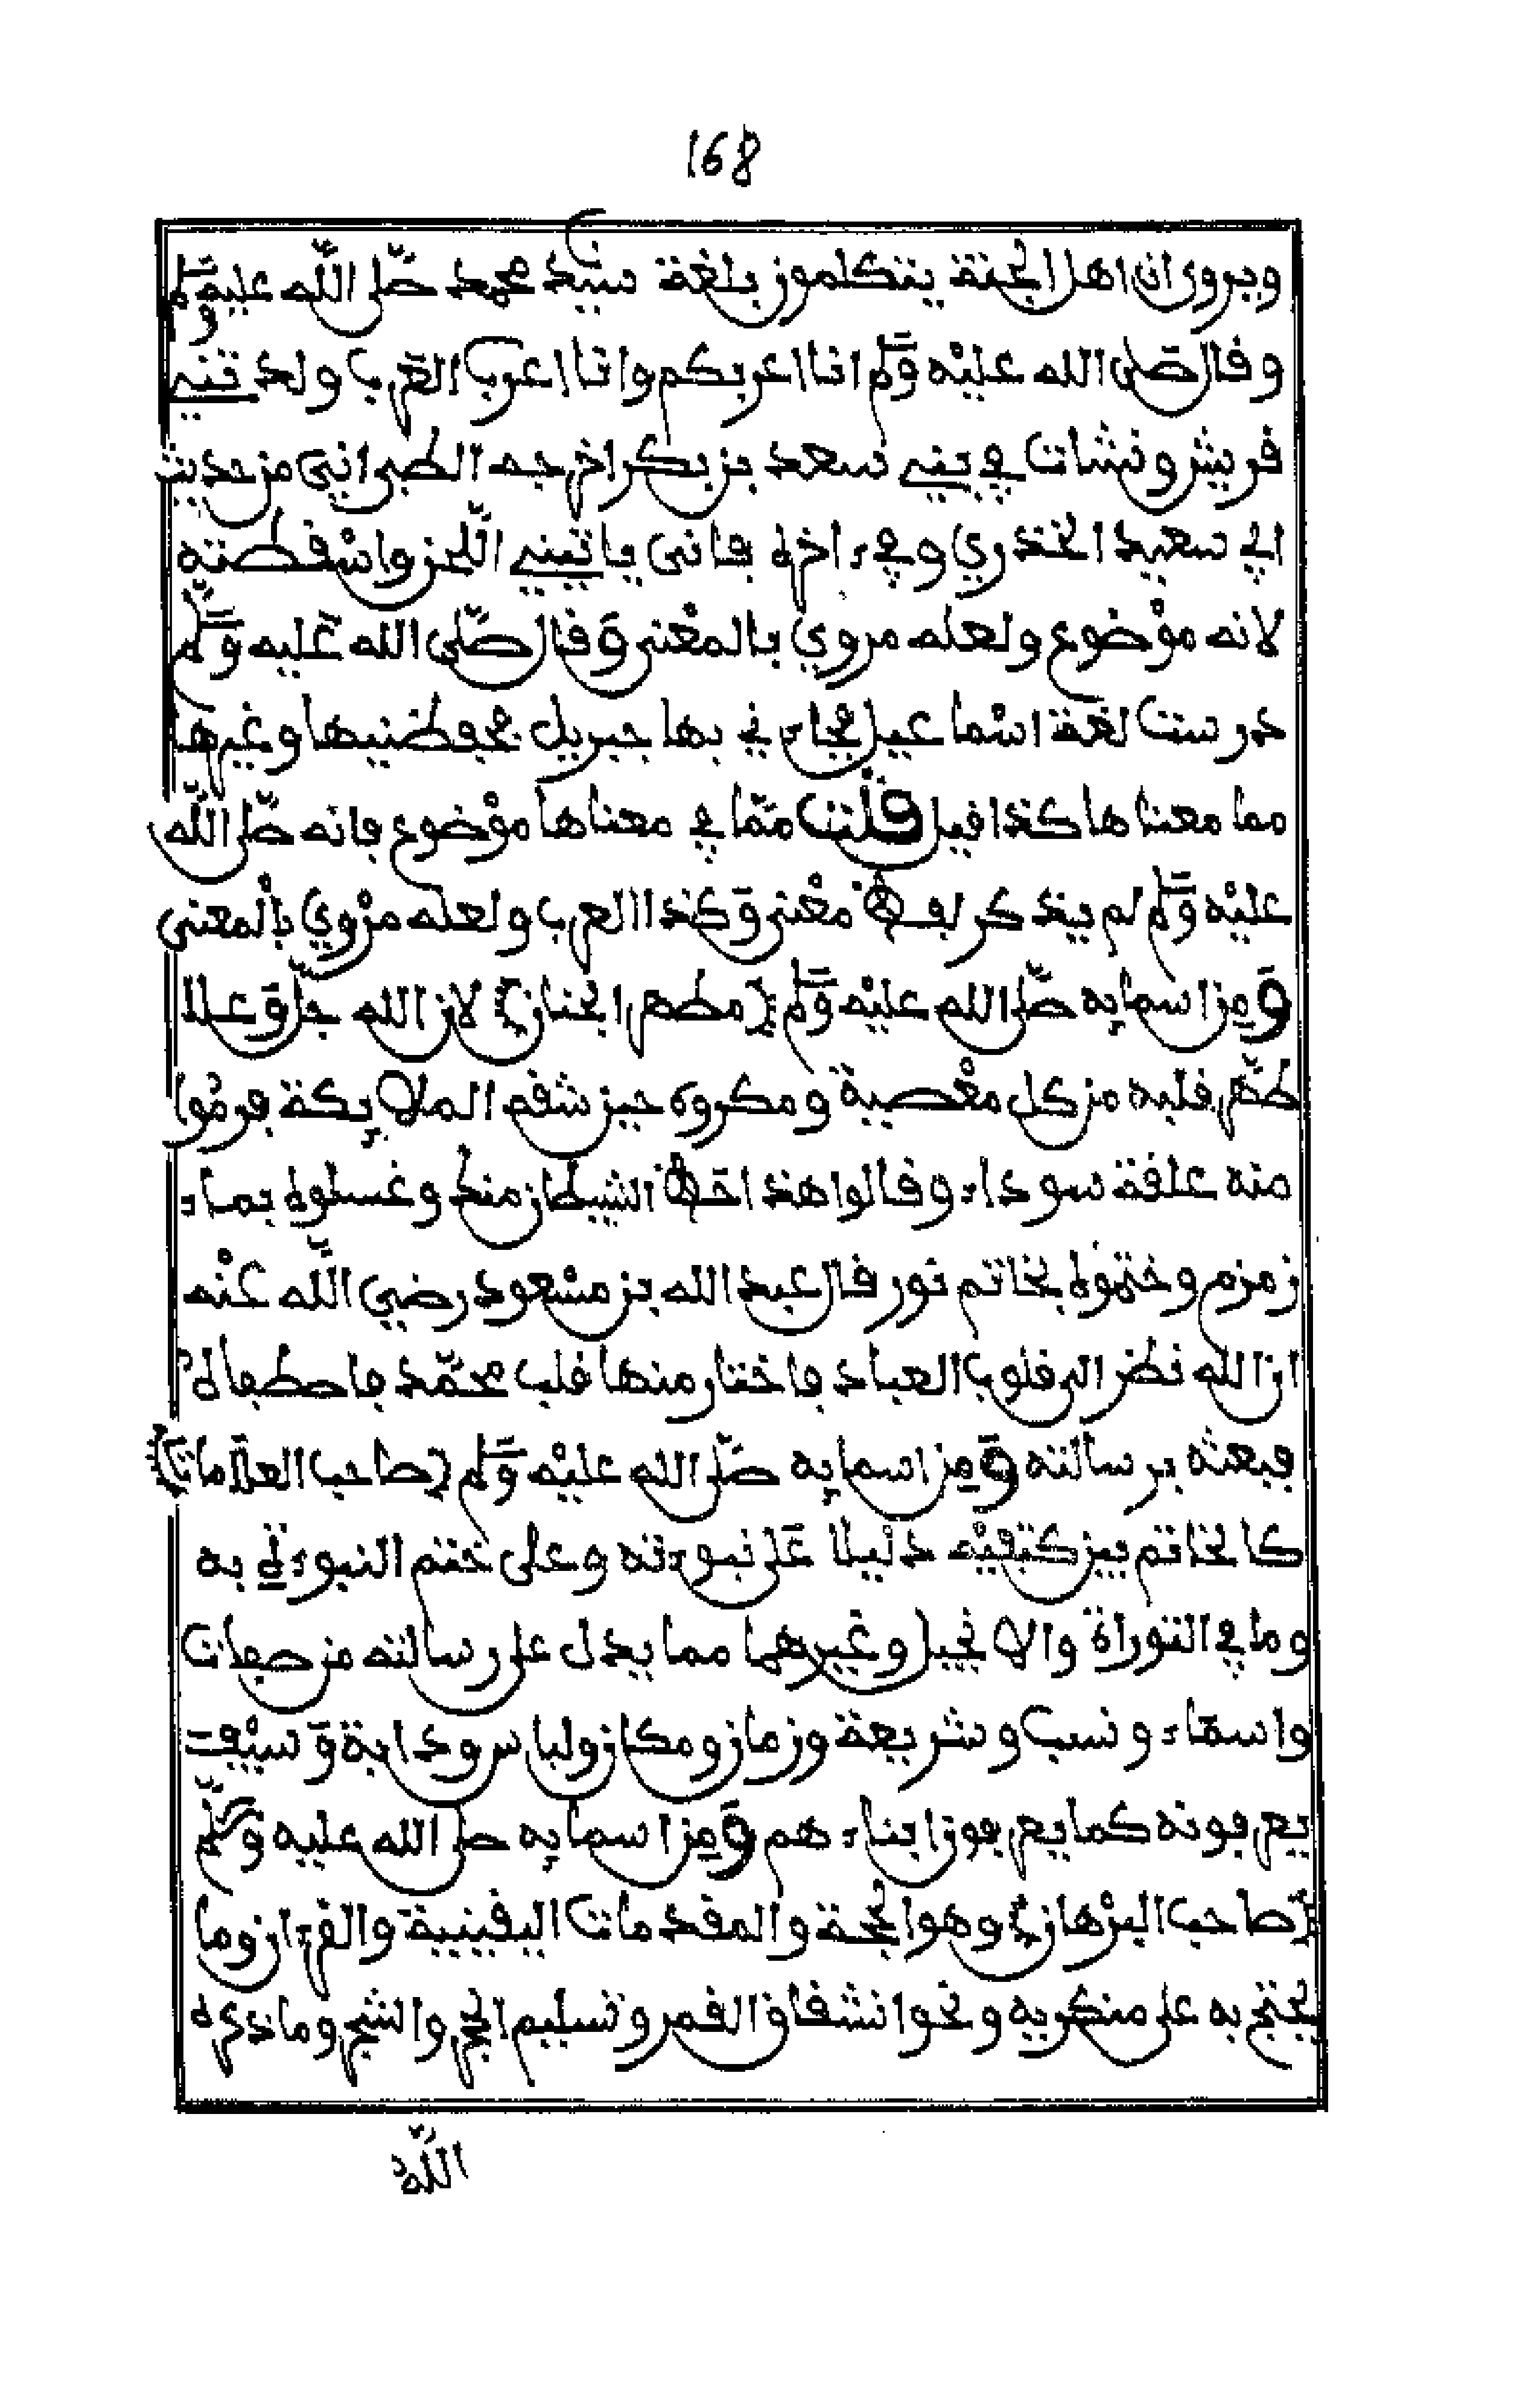 168
ويروى ان اهل الجنة يتكلمون بلغة سيد محمد صلى الله عليه وسلم
وقال صلى الله عليه وسلم انا اعربكم وانا اعرب العرب ولدتني
قريش ونشات في بني سعد بن بكر اخرجه الطبراني من حديث
ابي سعيد الخدري وفي ءاخره فانى ياتيني اللحن واسقطته
لانه موضوع ولعله مروي بالمعنى وقال صلى الله عليه وسلم
درست لغة اسماعيل فجاءني بها جبريل فحفظنيها وغيرها
مما معناها كذا قيل قلت مما في معناها موضوع فانه صلى الله
عليه وسلم لم يذكر لفظة معنى وكذا العرب ولعله مروي بالمعنى
ومن اسمايه صلى الله عليه وسلم مطهر الجنان لان الله جل وعلا
طهر قلبه من كل معصية ومكروه حين شقه الملايكة فرموا
منه علقة سوداء وقالوا هذا حظ الشيطان منك وغسلوه بماء
زمزم وختموه بخاتم نور قال عبد الله بن مسعود رضي الله عنه
ان الله نظر الى قلوب العباد فاختار منها قلب محمد فاصطفاه
فبعثه برسالته ومن اسمايه صلى الله عليه وسلم صاحب العلامات
كالخاتم بين كتفيه دليلا على نبوءته وعلى ختم النبوءة به
وما في التوراة والانجيل وغيرهما مما يدل على رسالته من صفات
واسماء ونسب وشريعة وزمان ومكان ولباس ودابة وسيف
يعرفونه كما يعرفون ابناءهم ومن اسمايه صلى الله عليه وسلم
صاحب البرهان وهو الحجة والمقدمات اليقينية والقرءان وما
يحتج به على منكريه ونحو انشقاق القمر وتسليم الحجر والشجر وما ذكره
الله